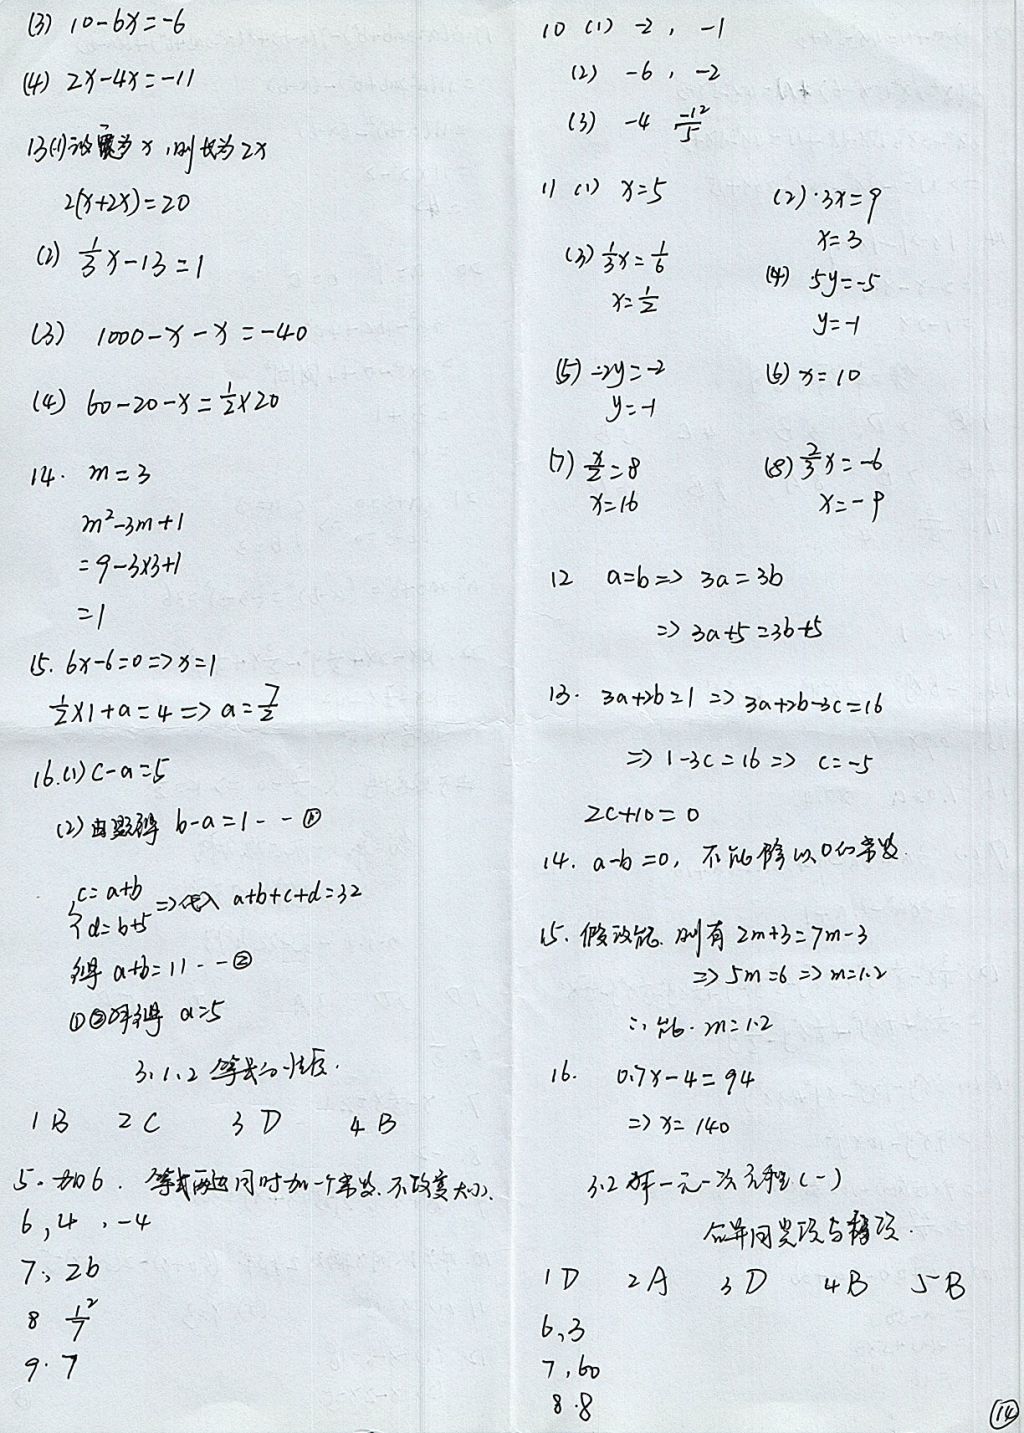 (3) 10-6x=-6
(4) 2x-4x=-11
13(1)设宽为x,则长为2x
2(x+2x)=20
(2) 1/3 x-13=1
(3) 1000-x-x=-40
(4) 60-20-x=1/2×20
14. m=3
m²-3m+1
=9-3×3+1
=1
15. 6x-6=0=>x=1
1/2×1+a=4=>a=7/2
16.(1) c-a=5
(2)由题得 b-a=1--①
{c=a+b
d=b+5 =>代入 a+b+c+d=32
得 a+b=11--②
①②解得 a=5
3.1.2 等式的性质.
1 B 2 C 3 D 4 B
5. 加6. 等式两边同时加一个常数,不改变大小.
6, 4, -4
7, 2b
8 12/7
9. 7
10 (1) -2, -1
(2) -6, -2
(3) -4 -12/5
11 (1) x=5 (2) 3x=9
x=3
(3) 1/3 x=1/6 (4) 5y=-5
x=1/2 y=-1
(5) 2y=-2 (6) x=10
y=-1
(7) x/2=8 (8) 2/3 x=-6
x=16 x=-9
12 a=b=> 3a=3b
=> 3a+5=3b+5
13. 3a+2b=1 => 3a+2b-3c=16
=> 1-3c=16 => c=-5
2c+10=0
14. a-b=0, 不能除以0的常数.
15. 假设能. 则有 2m+3=7m-3
=> 5m=6 => m=1.2
∴能. m=1.2
16. 0.7x-4=94
=> x=140
3.2 解一元一次方程(一)
合并同类项与移项.
1 D 2 A 3 D 4 B 5 B
6, 3
7, 60
8. 8
14